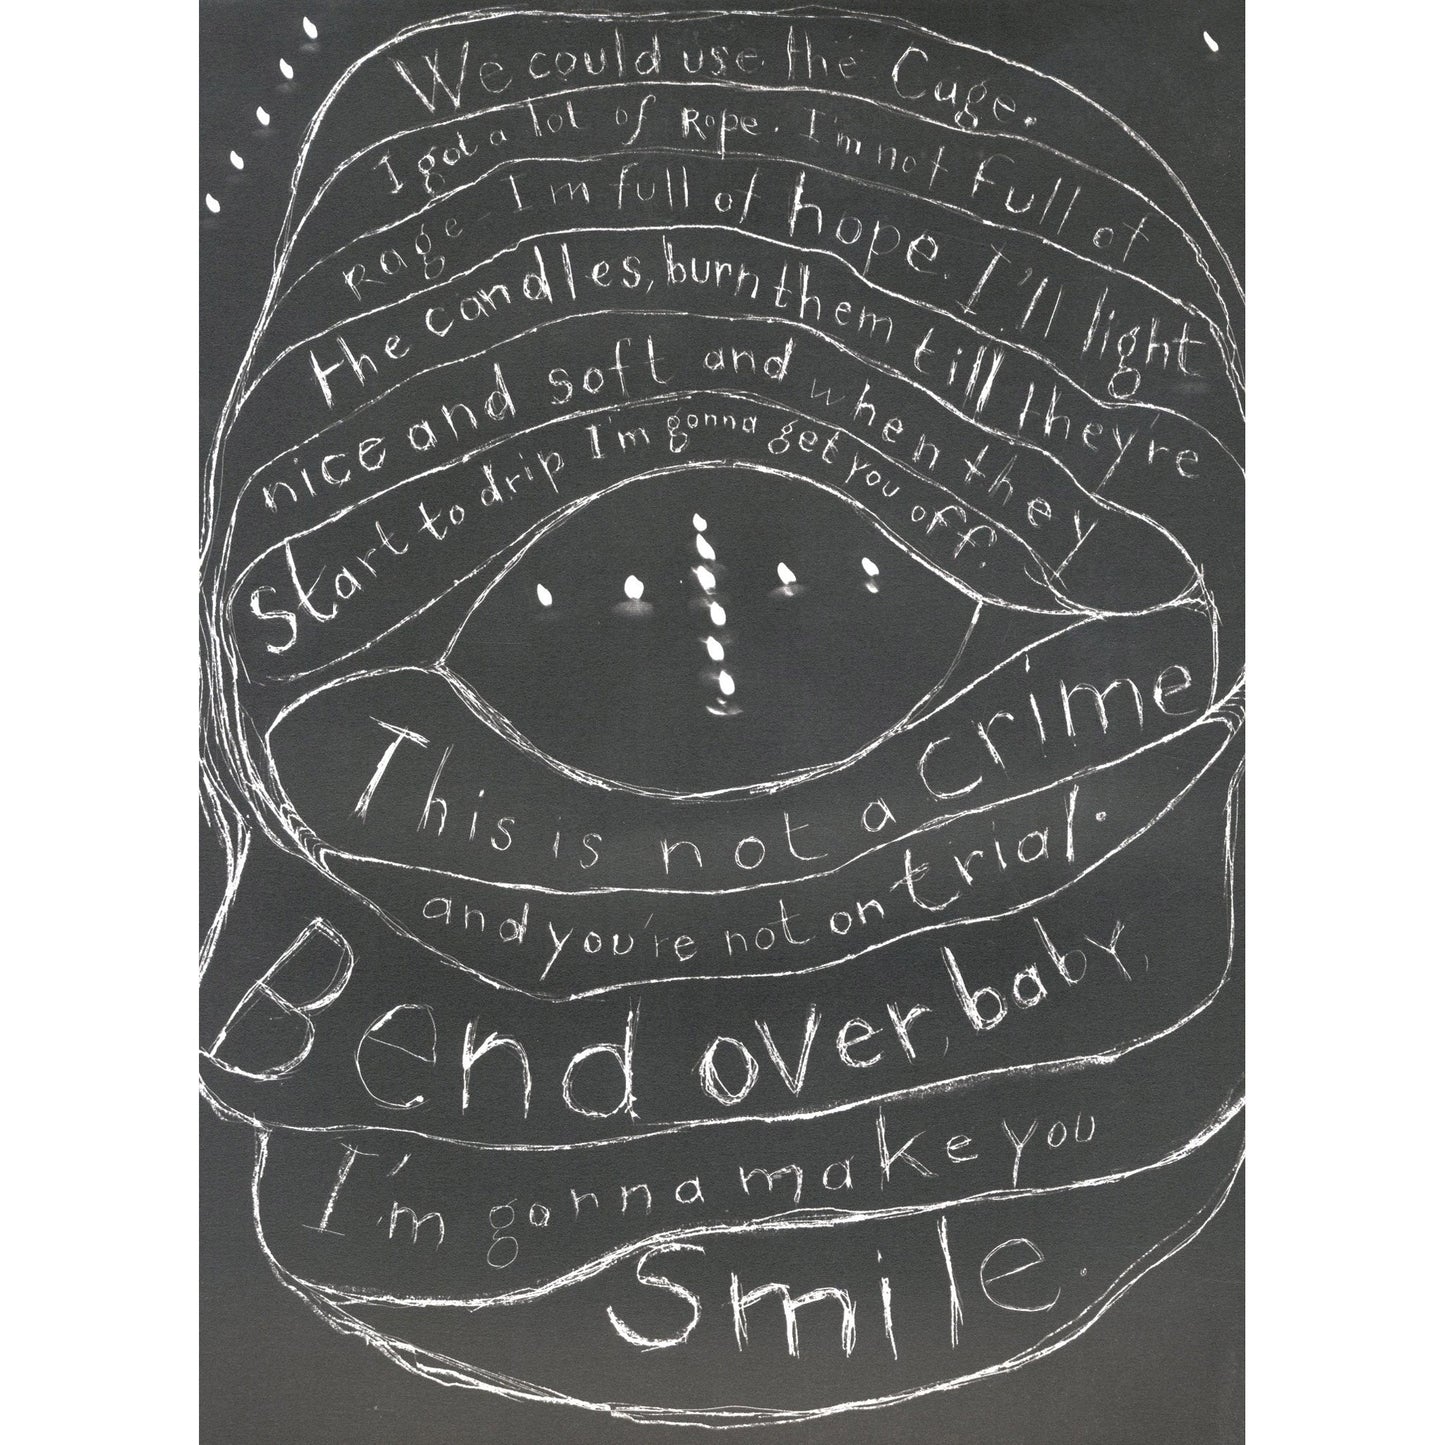 We could use the Cage.
I got a lot of Rope. I'm not full of
Rage - I'm full of hope. I'll light
the candles, burn them till they're
nice and soft and when they
Start to drip I'm gonna get you off.
This is not a crime
and you're not on trial.
Bend over, baby,
I'm gonna make you
Smile.